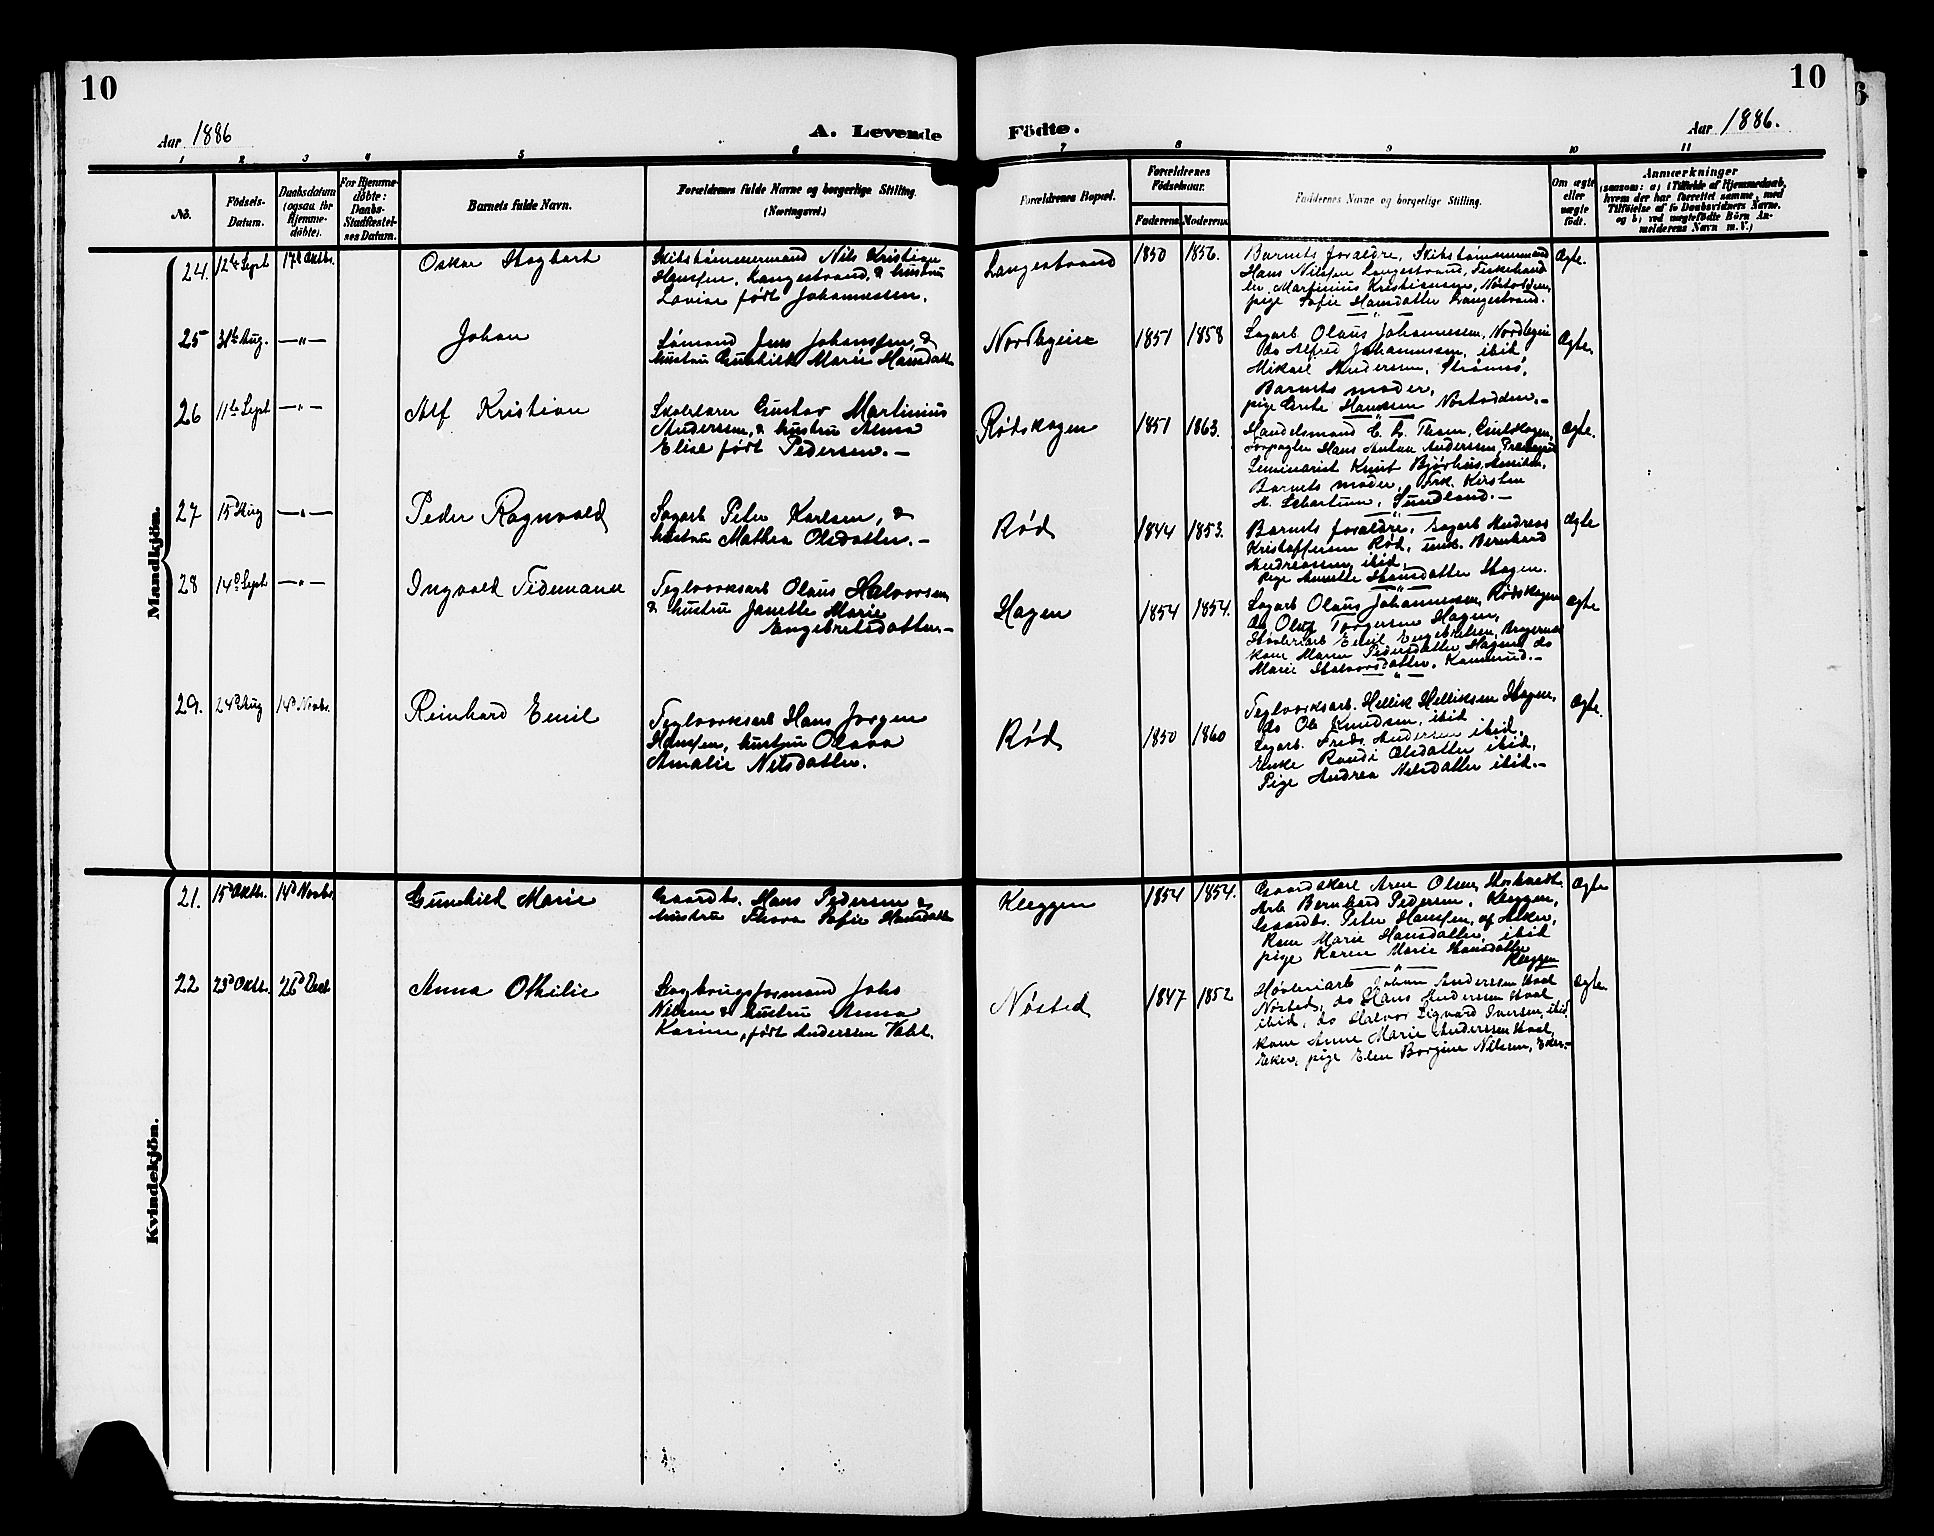 10
10
Aar 1886
A. Levende
Födte.
Aar 1886.
1 2 3 4 5 6 7 8 9 10 11
No.
Födsels-
Datum.
Daabsdatum
(ogsaa for
Hjemme-
döbte).
For Hjemme-
döbte:
Daabs-
Stadfæstel-
ses Datum.
Barnets fulde Navn.
Forældrenes fulde Navne og borgerlige Stilling.
(Næringsvei.)
Forældrenes Bopæl.
Forældrenes
Födselsaar.
Faderens.
Moderens.
Faddernes Navne og borgerlige Stilling.
Om ægte
eller
uægte
født.
Anmærkninger
(saasom: a) i Tilfælde af Hjemmedaab,
hvem der har forrettet samme, med
Tilföielse af to Daabsvidners Navne,
og b) ved uægtefödte Börn An-
melderens Navn m. V.)
Mandkjön.
24.
12te Sept
17d Oktbr.
Oskar Hagbart
Skibstømmermand Nils Kristian
Hansen, Langestrand, & hustru
Lovise født Johannessen.
Langestrand
1850
1856.
Barnets forældre, Skibstømmermand
Hans Nilssen Langestrand, Fiskehand
ler Martinius Kristiansen,
pige Sofie Hansdatter Langestrand.
Ægte.
25
31te Aug.
—"—
Johan
Sømand Jens Johanssen, &
hustru Gunhild Marie Hansdatt
Nordbyeie
1851
1858
Sagarb Olaus Johannessen, Nordbyeie
do Alfred Johannessen, ibid,
Mikael Andersen, Strømsø,
Barnets moder,
pige Grete Hanssen Nøstodden.—
Ægte.
26
11te Sept
—"—
Alf Kristian
Skolelærer Gustav Martinius
Anderssen, & hustru Anna
Elise født Pedersen.—
Rødskogen
1851
1863.
Handelsmand C. L. Tham,
Hans Anton Anderssen,
Seminarist Knut Bjørhus,
Barnets moder, Frk. Kirsten
M. Schartum, Sundland.—
Ægte.
27
15d Aug
—"—
Peder Ragnvald
Sagarb Peter Karlsen, &
hustru Mathea Olsdatter.—
Rød
1844
1853.
Barnets forældre, Sagarb Andreas
Kristoffersen Rød, unk. Bernhard
Andreassen, ibid,
Pige Annette Hansdatter Hagen.
Ægte
28
14d Sept
—"—
Ingvald Tidemand
Teglværksarb Olaus Halvorsen
& hustru Janette Marie
Engebretsdatter.—
Hagen
1854
1854.
Sagarb Olaus Johannessen, Rødskogen
do Oluf Torgersen Hagen,
Høvleriarb Emil Engebretsen,
kone Maren Pedersdatter Hagen, do
Marie Halvorsdatter,
Ægte
29.
24d Aug
14d Novbr.
Reinhard Emil
Teglværksarb Hans Jørgen
Hanssen, hustru Olava
Amalie Nilsdatter.
Rød
1850
1860
Teglværksarb. Hellik Helliksen Hagen,
do Ole Knudsen, ibid
Sagarb. Fredr. Andersen ibid,
Enke Randi Olsdatter ibid,
Pige Andrea Nilsdatter ibid.—
Ægte.
Kvindekjön.
21.
15d Oktbr.
14d Novbr
Gunhild Marie
Gaardbr. Hans Pedersen &
hustru Thora Sofie Hansdatt
Kleggen
1854
1854.
Gaardskarl Arne Olsen,
Arb Bernhard Pedersen, Kleggen,
Gaardbr. Peter Hanssen, af Asker,
Kone Marie Hansdatter, ibid
pige Karen Marie Hansdatter
Kleggen
Ægte
22
23d Oktbr.
26d Decbr
Anna Othilie
Sagbrugsformand Johs
Nilsen & hustru Anna
Karine, født Anderssen Vahl.
Nøsted
1847
1852
Høvleriarb Johan Anderssen
Nøsted, do Hans Anderssen
ibid, do Halvor Sigvard Iversen, ibid
kone Anne Marie Anderssen
Eker, pige Elen Borgine Nilsen, Eker.—
Ægte